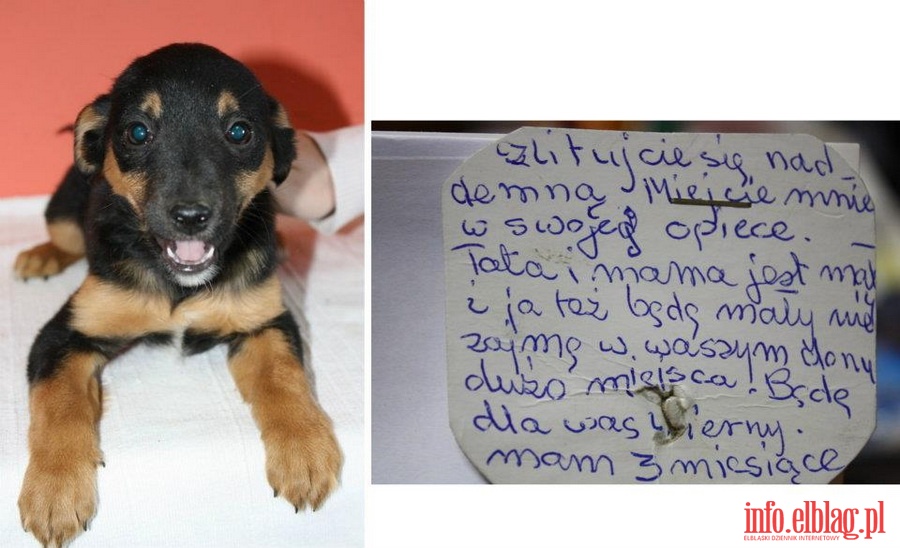 zlitujcie się nad_
demną. Miejcie mnie
w swojej opiece.
Tata i mama jest mał
i ja też będę mały nie
zajmę w waszym domu
dużo miejsca. Będę
dla was wierny.
mam 3 miesiące
info.elblag.pl
ELBLĄSKI DZIENNIK INTERNETOWY